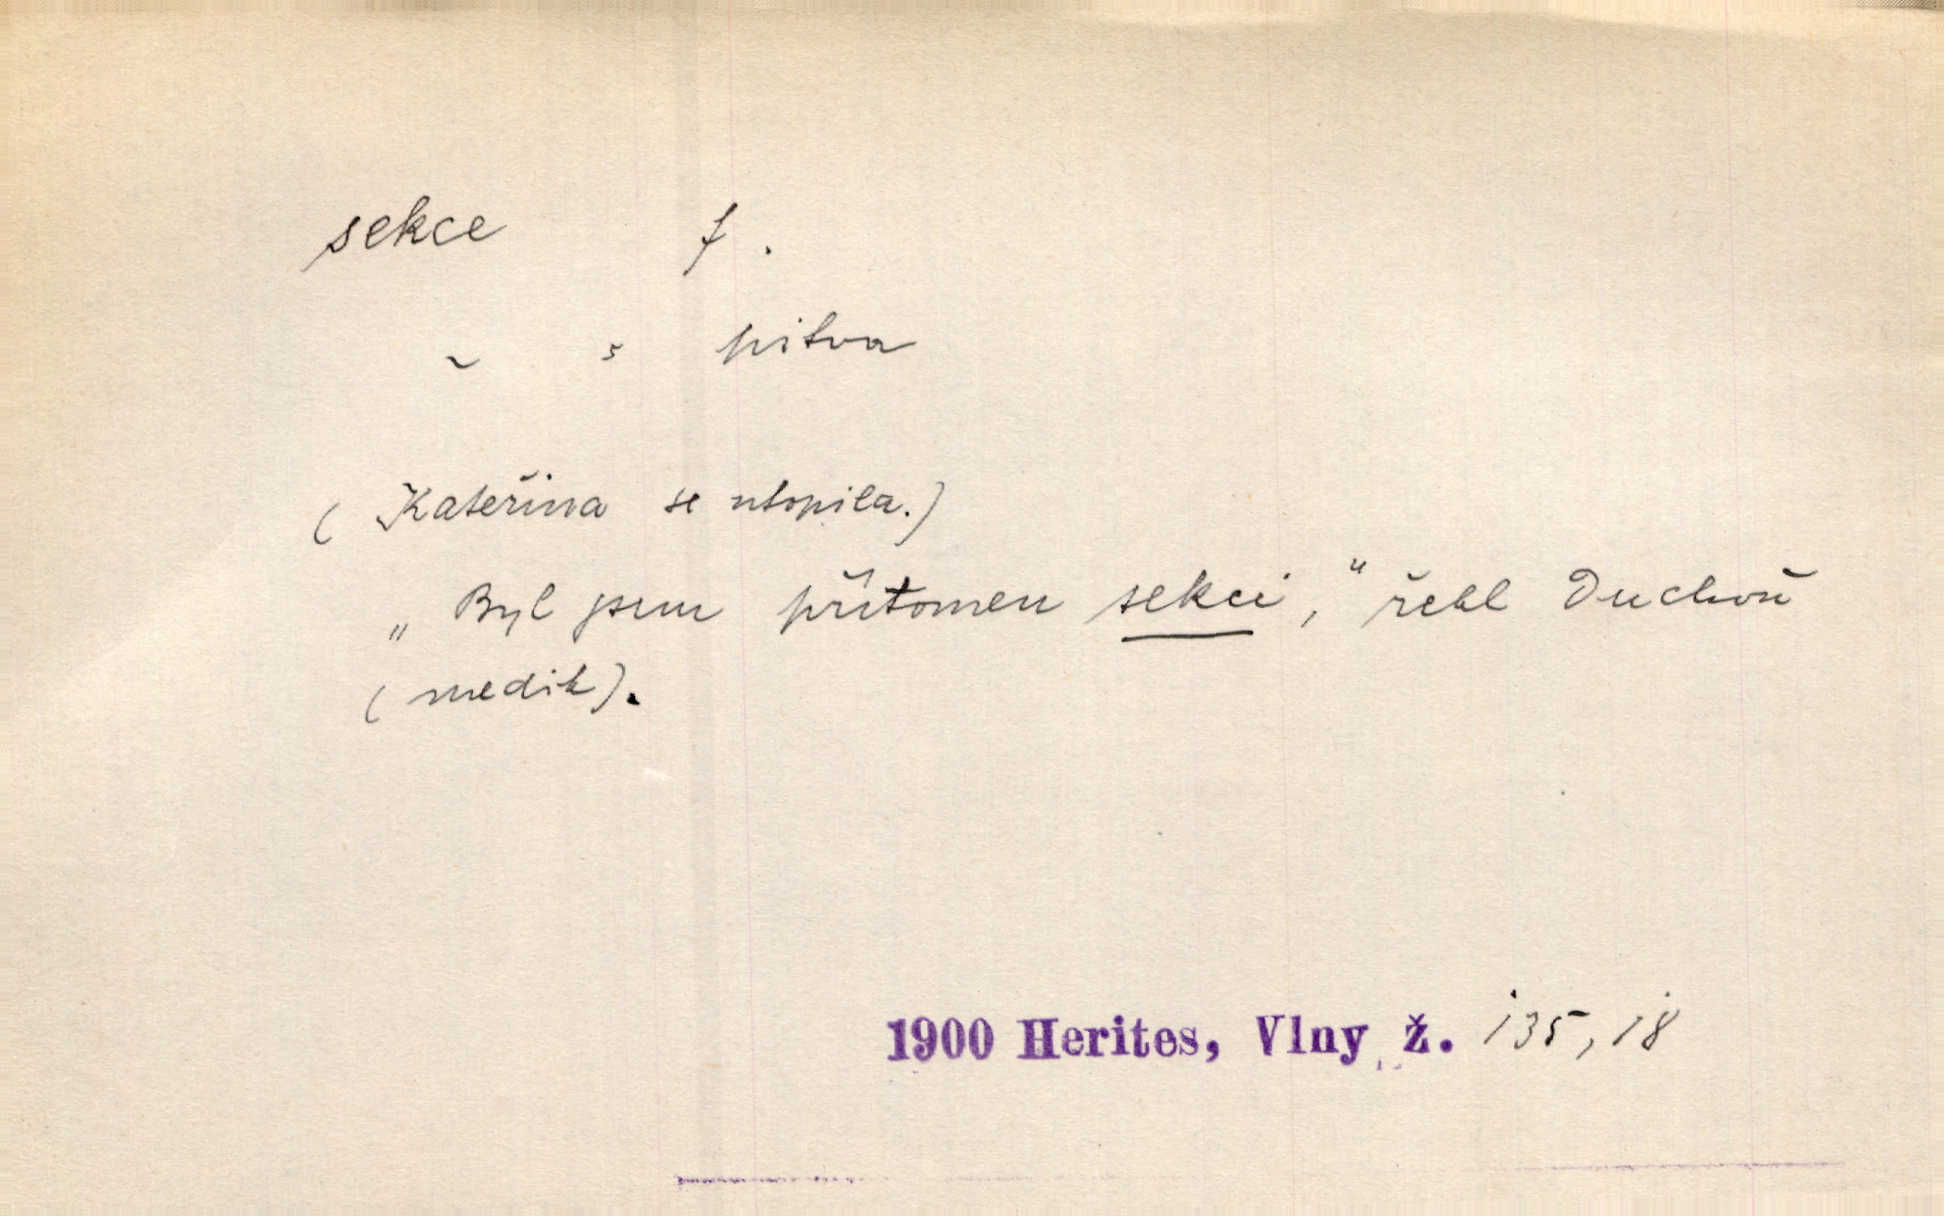 sekce f.
~ s pitva
(Kateřina se utopila.)
„Byl jsem přítomen sekci," řekl Duchoň
(medik).
1900 Herites, Vlny ž. 135, 18